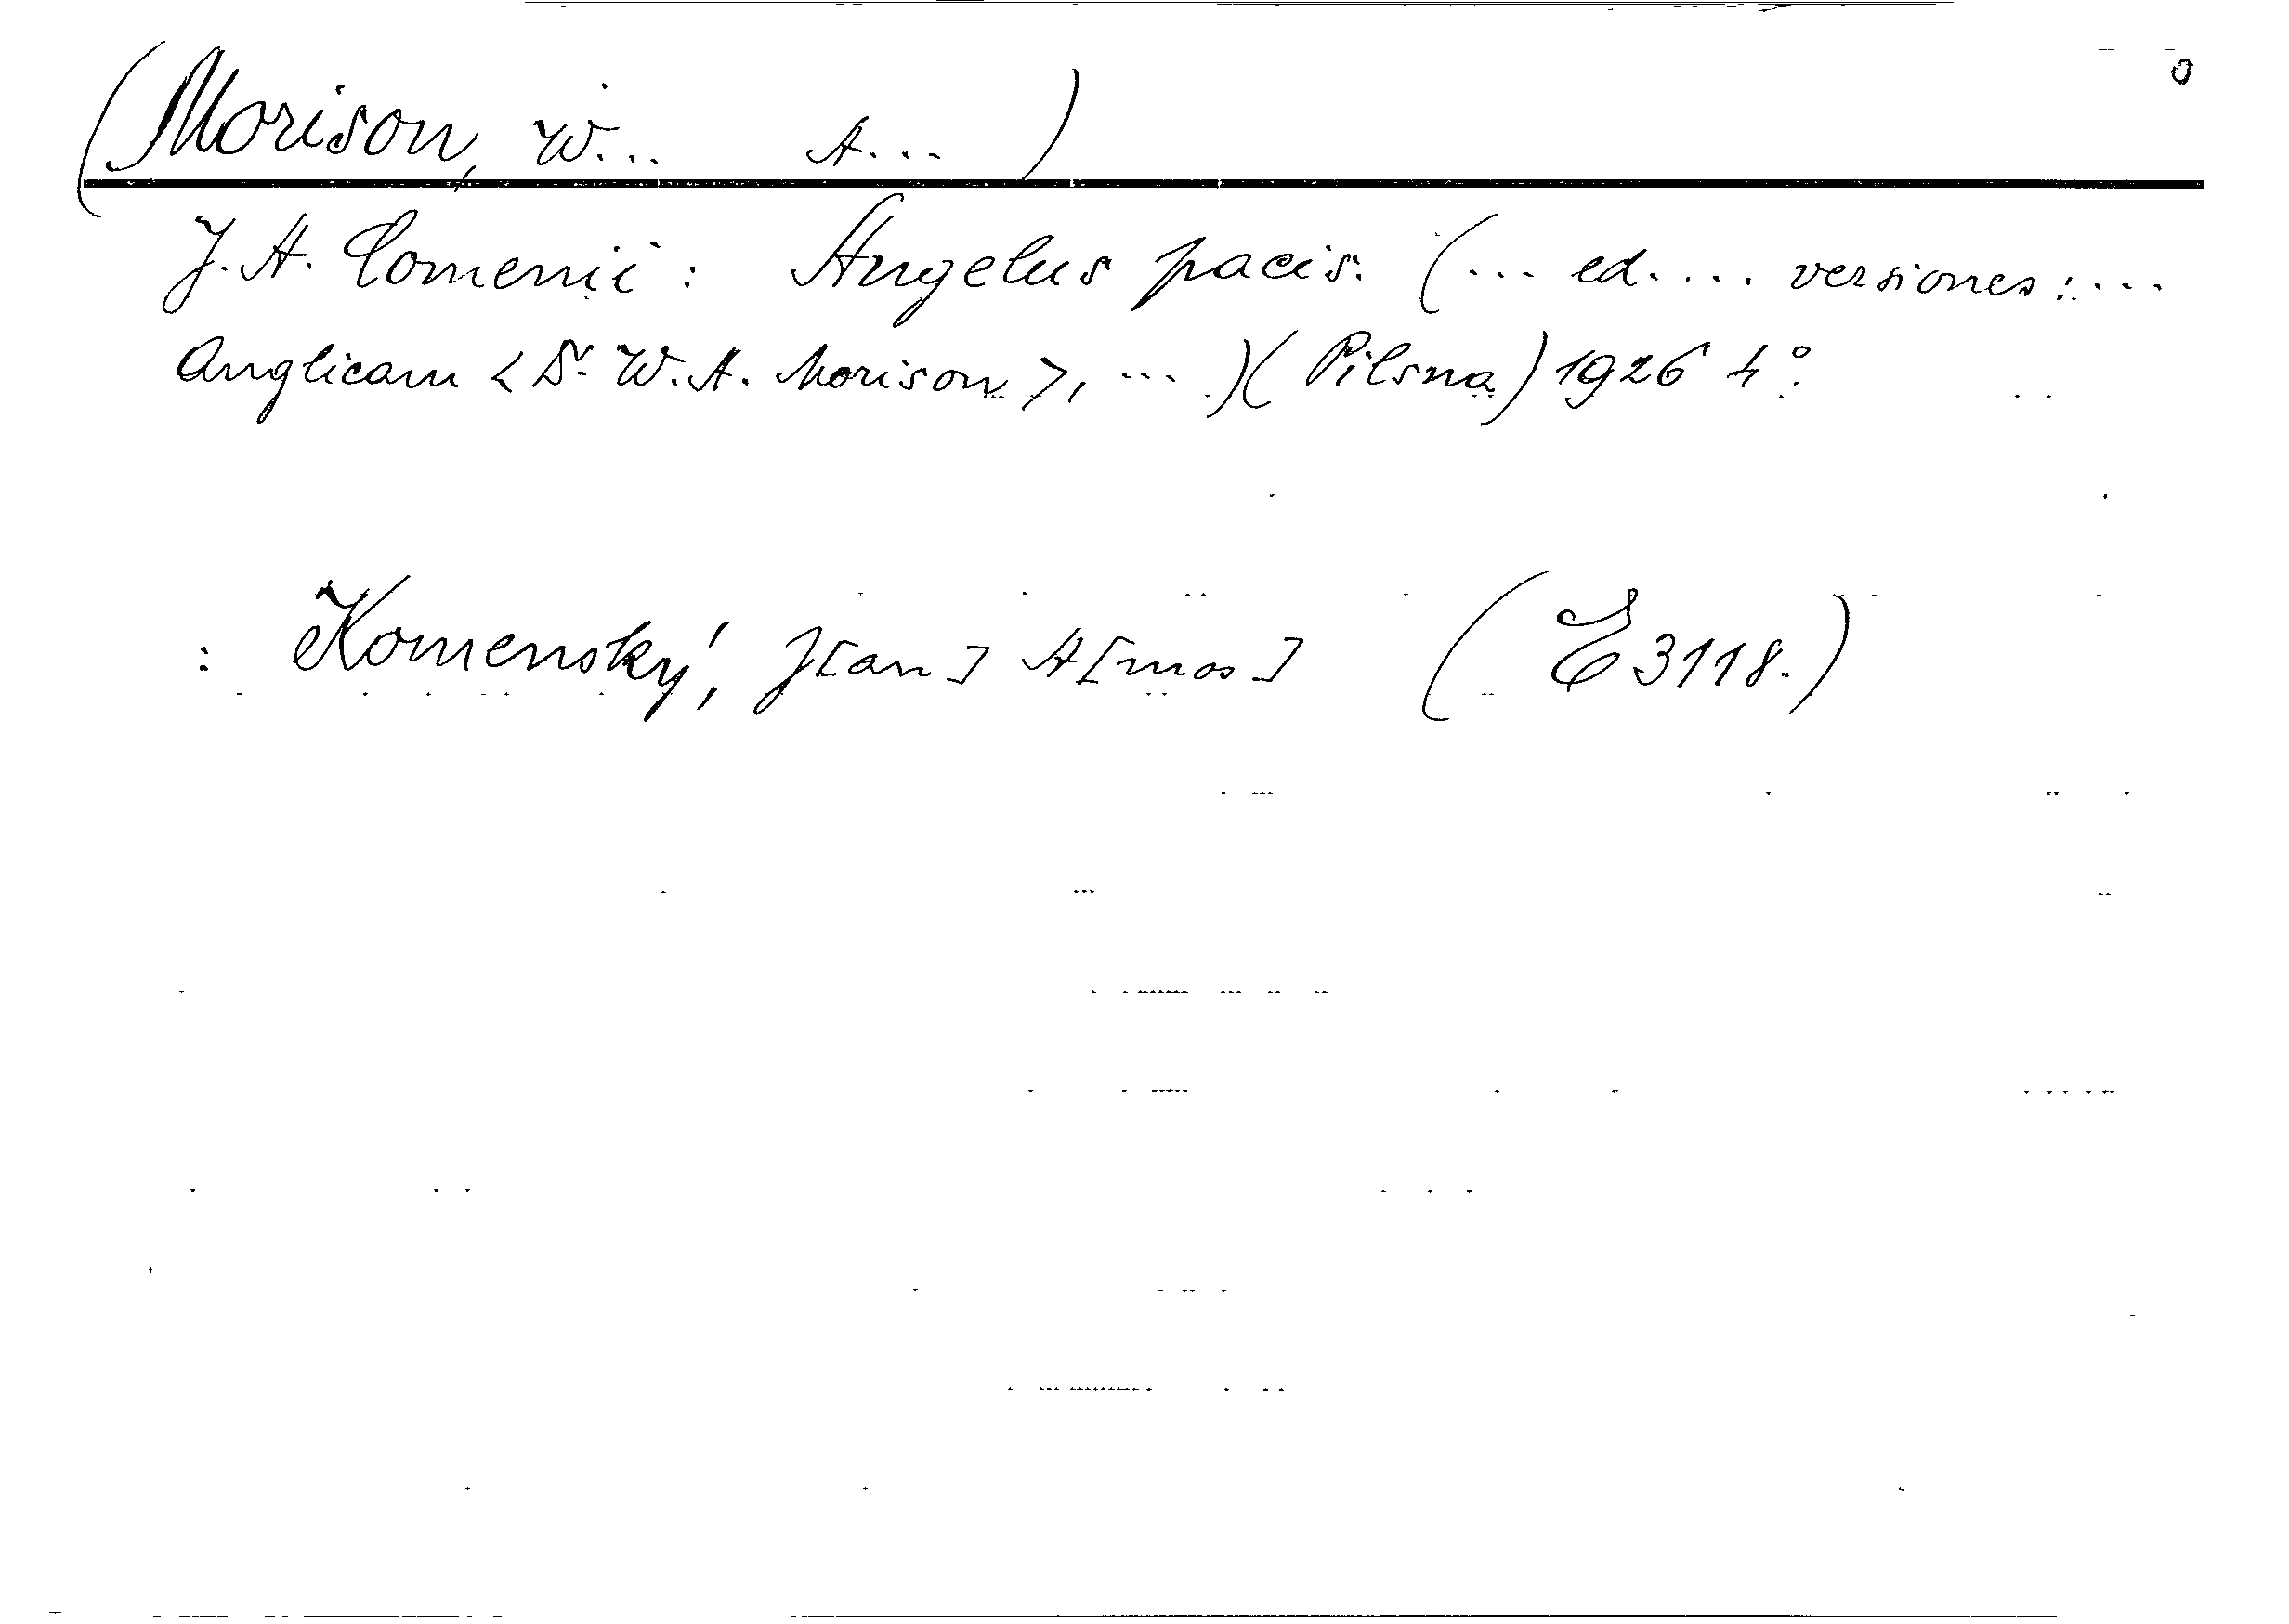 (Morison, W... A...)
J. A. Comenii: Angelus pacis. (... ed. ... versiones: ...
Anglicam <Dr. W. A. Morison>, ...)(Pilsna) 1926 4°.
: Komenský, J[an] A[mos] (E 3118.)